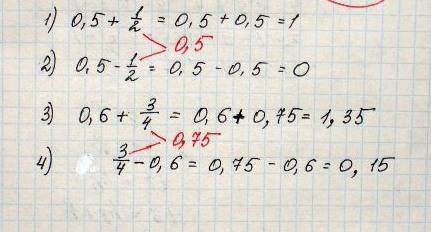 1) 0,5 + 1/2 = 0,5 + 0,5 = 1
0,5
2) 0,5 - 1/2 = 0,5 - 0,5 = 0
3) 0,6 + 3/4 = 0,6 + 0,75 = 1,35
0,75
4) 3/4 - 0,6 = 0,75 - 0,6 = 0,15